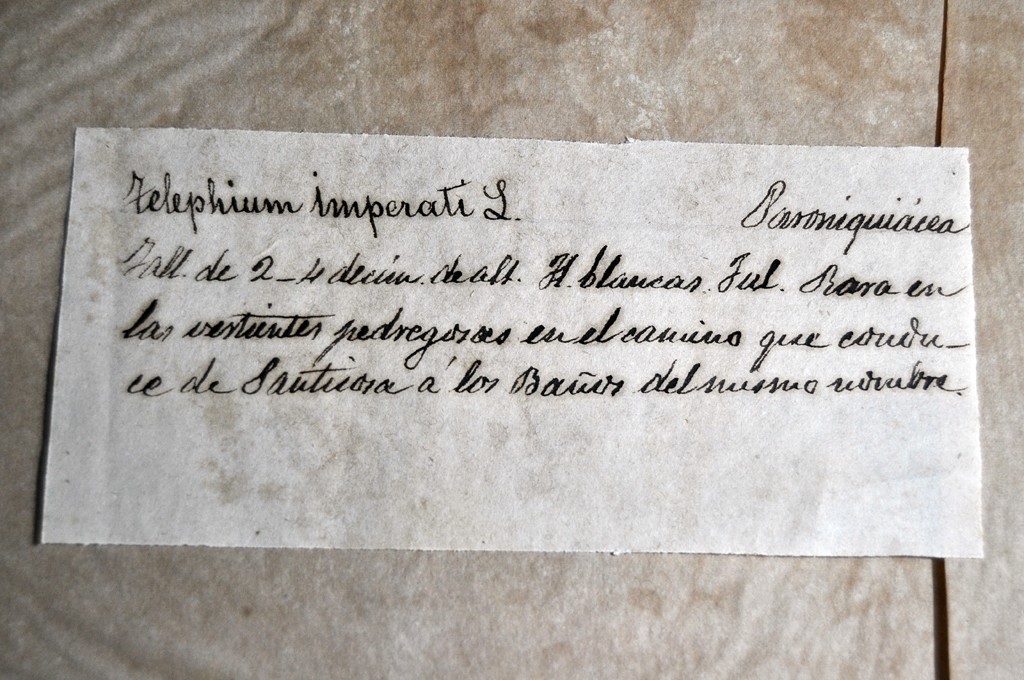 Telephium imperati L. Paroniquiácea
Tall. de 2-4 decím. de alt. fl. blancas. Jul. Rara en
las vertientes pedregosas en el camino que condu-
ce de Panticosa á los Baños del mismo nombre.